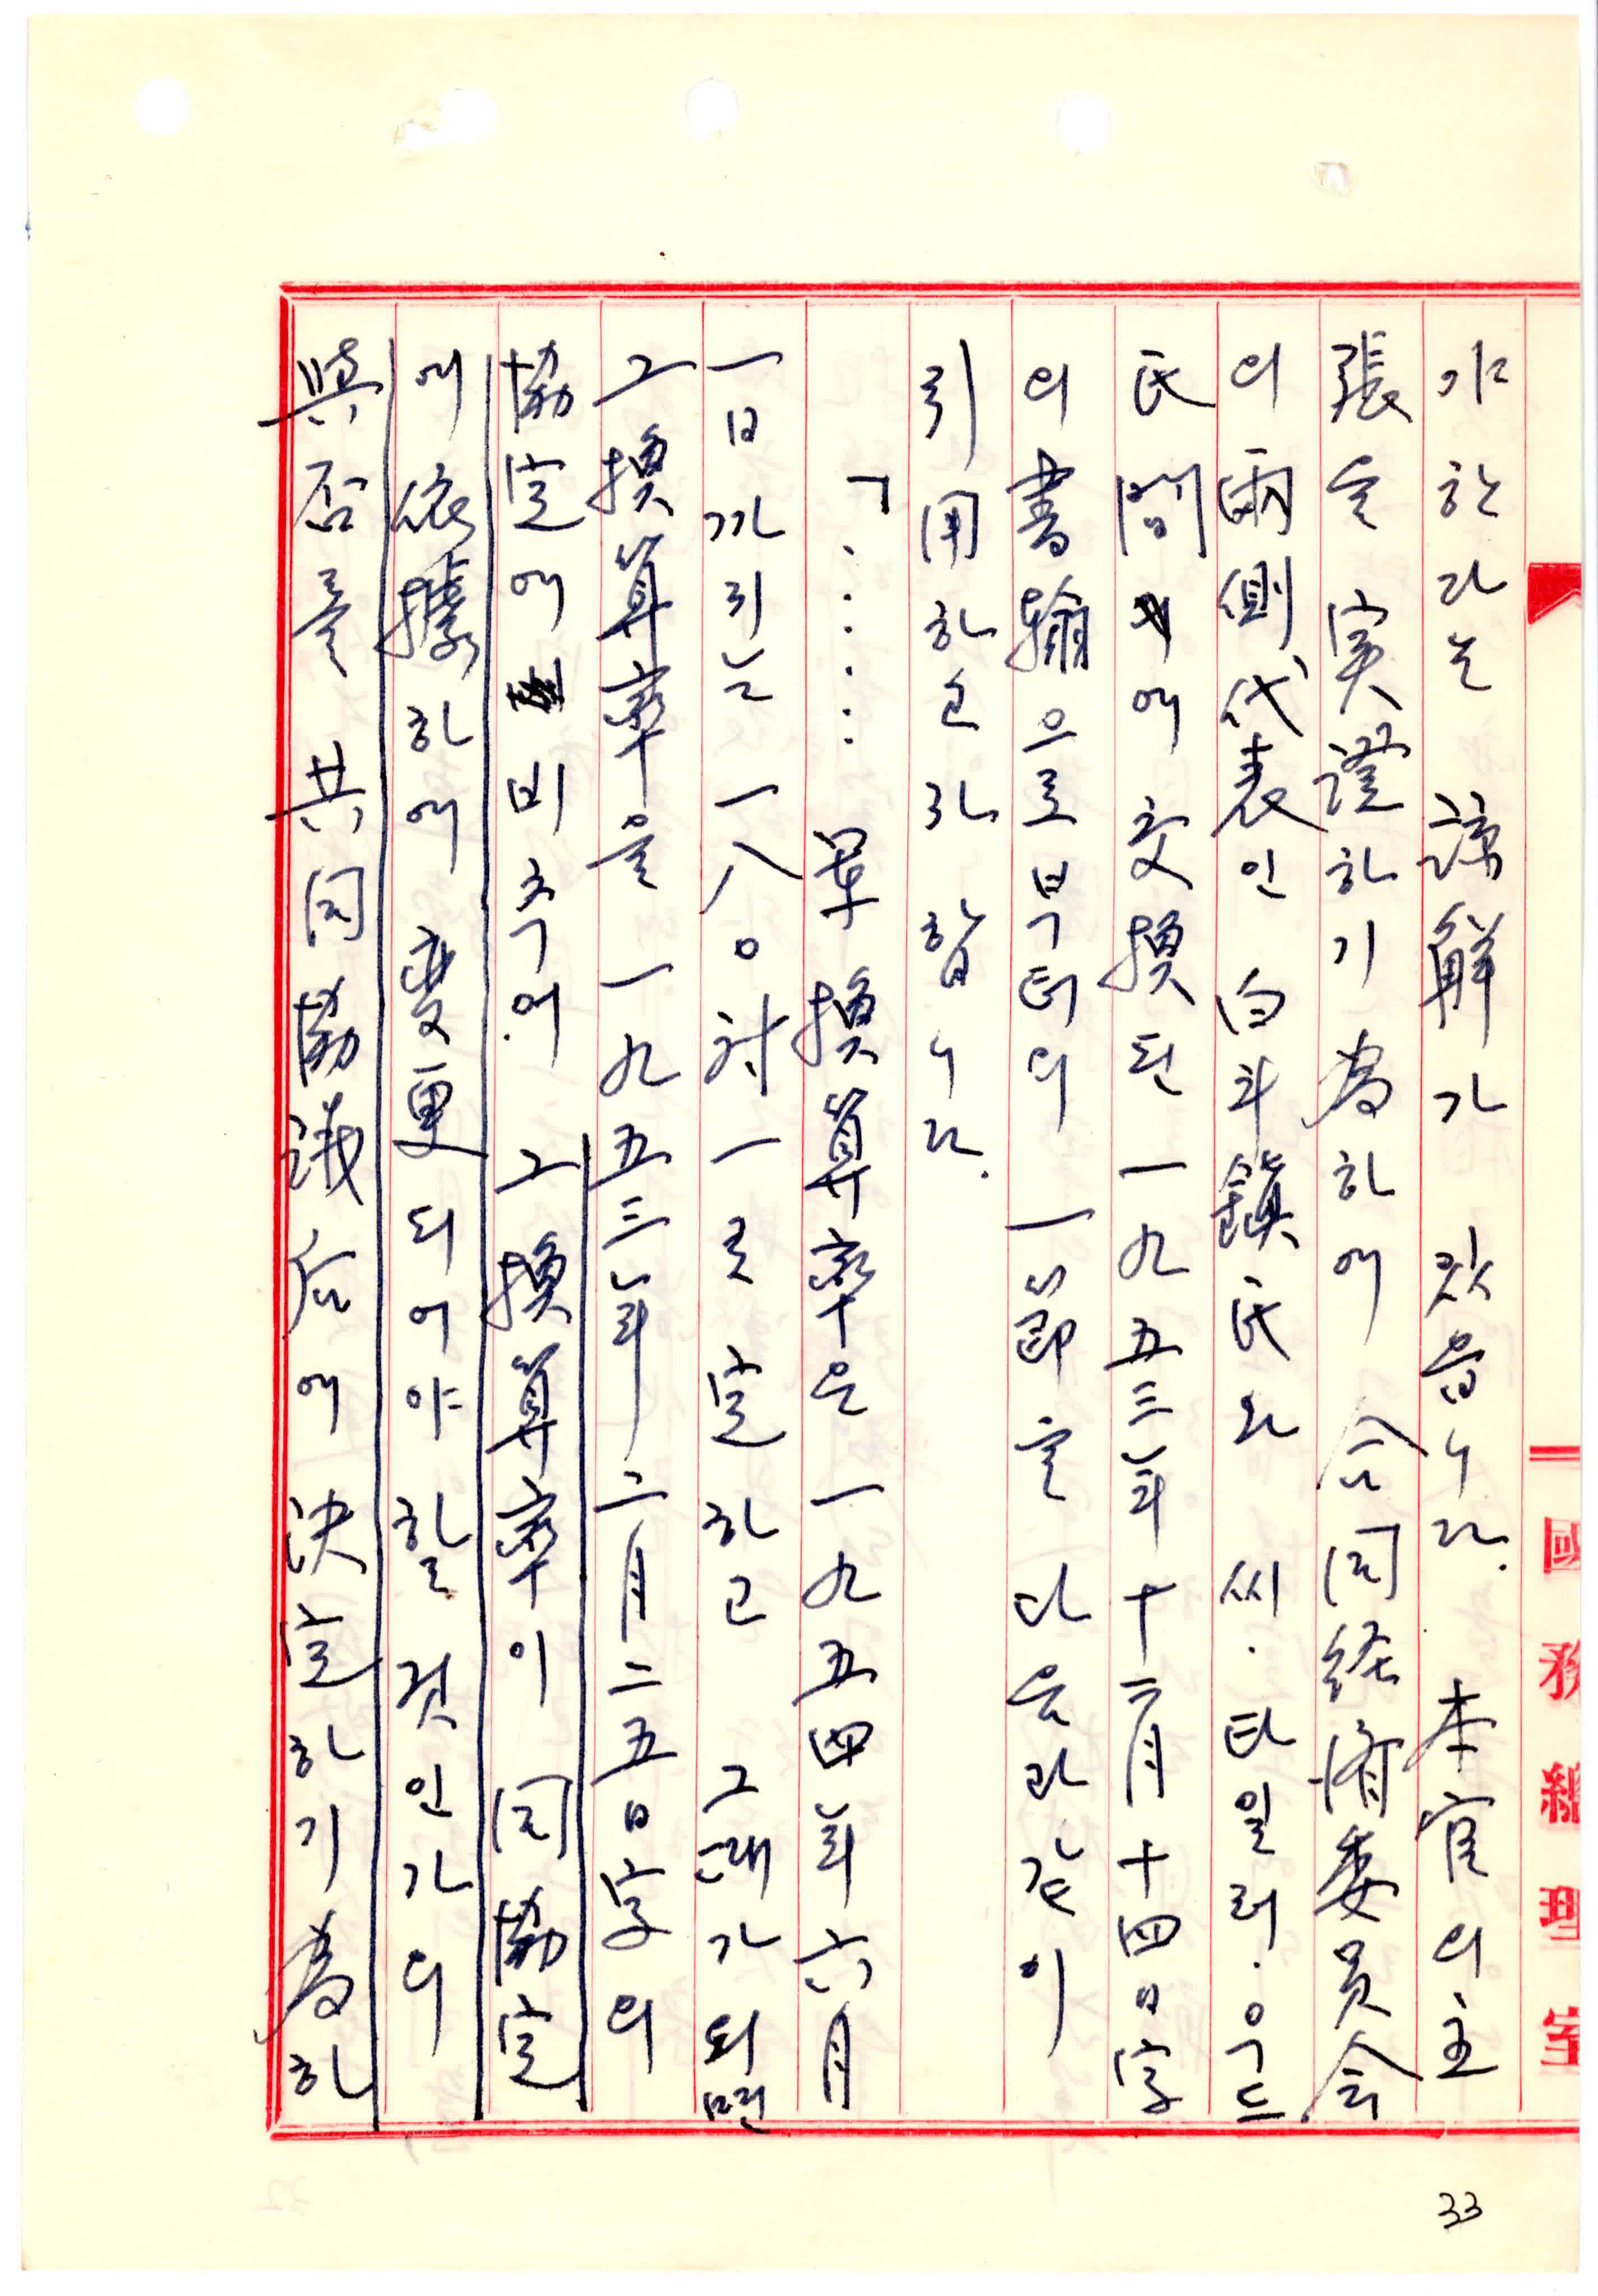 야 한다는 諒解가 있읍니다. 本官의 主
張을 実證하기 爲하여 合同経濟委員会
의 兩側代表인 白斗鎭氏와 씨·타일러·우드
氏間에 交換된 一九五三年十二月十四日字
의 書翰으로부터의 一節을 다음과 같이
引用하고저 합니다.
「.......본 換算率은 一九五四年六月
一日까지는 一八〇対一로 定하고 그때가 되면
그 換算率을 一九五三年二月二五日字의
協定에 비추어 그 換算率이 同協定
에 依據하여 變更되어야 할 것인가의
與否를 共同協議后에 決定하기 爲하
國務總理室
33